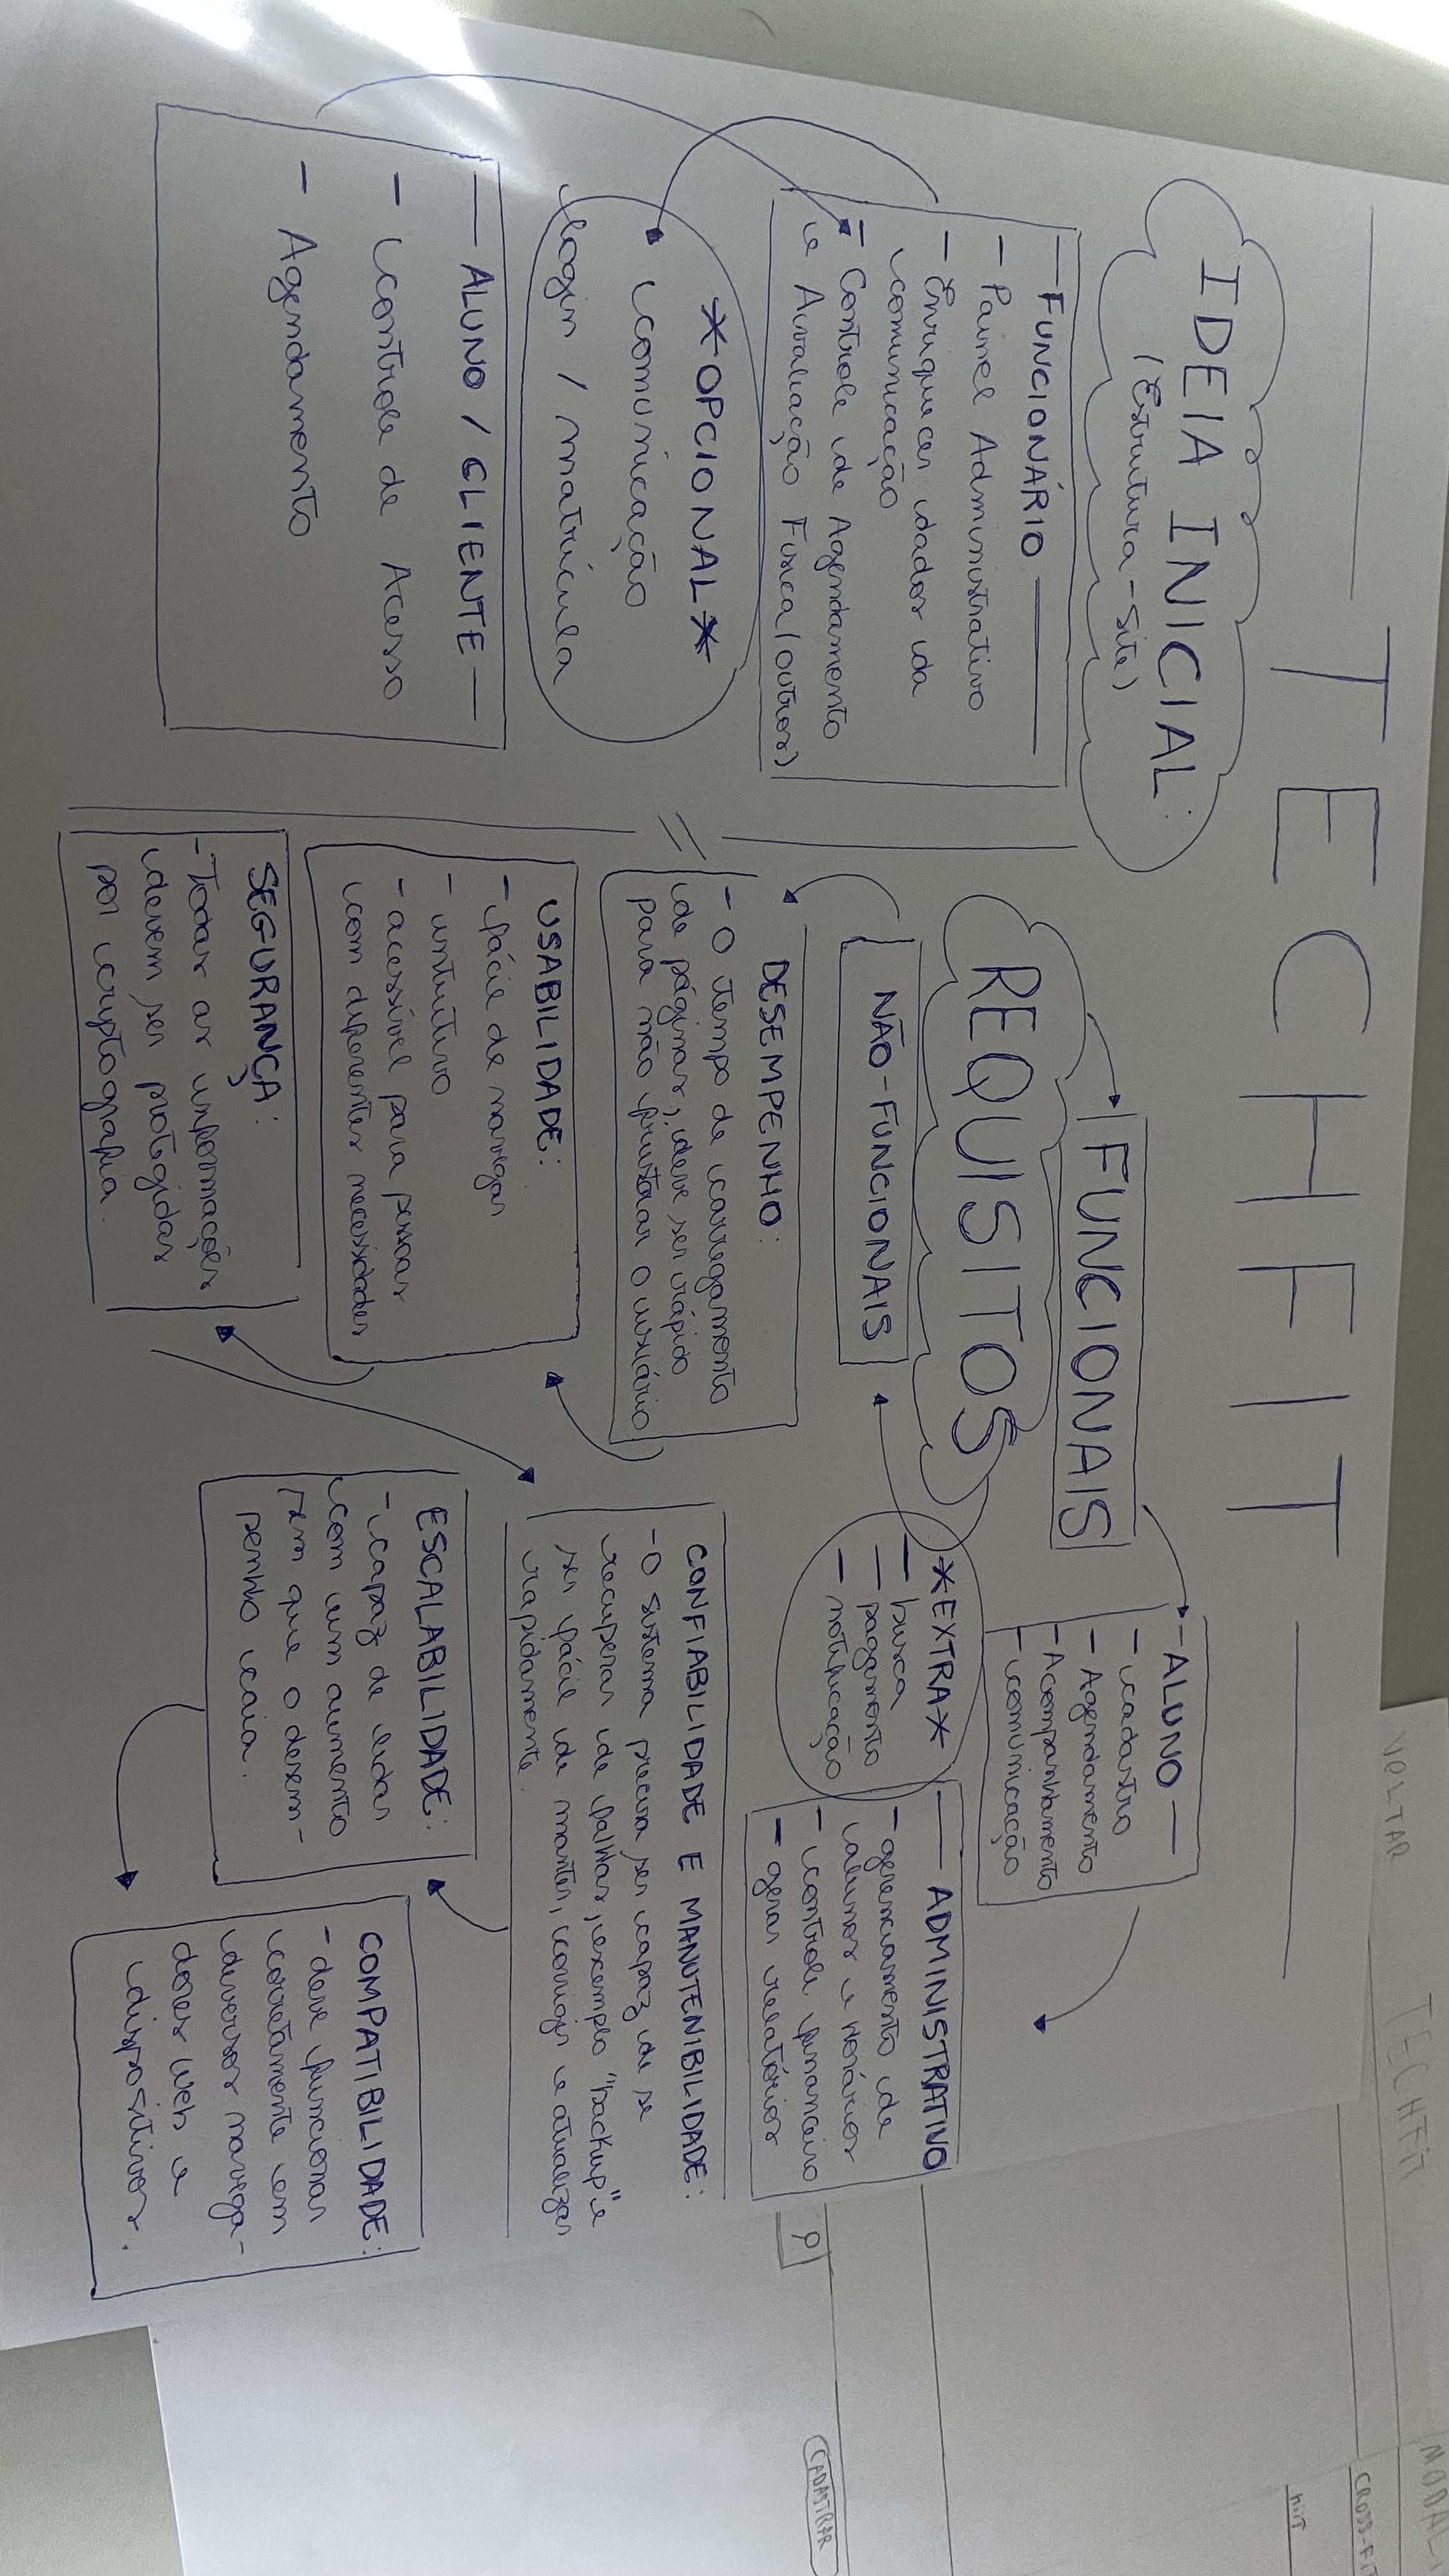 TECHFIT
IDEIA INICIAL:
(Estrutura-Site)
FUNCIONÁRIO
- Painel Administrativo
- Enriquecer dados da
comunicação
- Controle de Agendamento
e Avaliação Física (outros)
*OPCIONAL*
comunicação
login / matrícula
ALUNO / CLIENTE
- Controle de Acesso
- Agendamento
REQUISITOS
FUNCIONAIS
- ALUNO
- cadastro
- Agendamento
- Acompanhamento
- comunicação
ADMINISTRATIVO
- gerenciamento de
alunos e horários
- controle financeiro
- gerar relatórios
*EXTRA*
- busca
- pagamento
- notificação
NÃO-FUNCIONAIS
DESEMPENHO:
- O tempo de carregamento
de páginas, deve ser rápido
para não frustrar o usuário
USABILIDADE:
- fácil de navegar
- intuitivo
- acessível para pessoas
com diferentes necessidades
SEGURANÇA:
- Todas as informações
devem ser protegidas
por criptografia.
CONFIABILIDADE E MANUTENIBILIDADE:
- O sistema precisa ser capaz de se
recuperar de falhas, exemplo "backup" e
ser fácil de manter, corrigir e atualizar
rapidamente.
ESCALABILIDADE:
- capaz de lidar
com um aumento
sem que o desem-
penho caia.
COMPATIBILIDADE:
- deve funcionar
corretamente em
diversos navega-
dores web e
dispositivos.
VOLTAR
TECHFIT
CADASTRAR
CROSS-FIT
HIIT